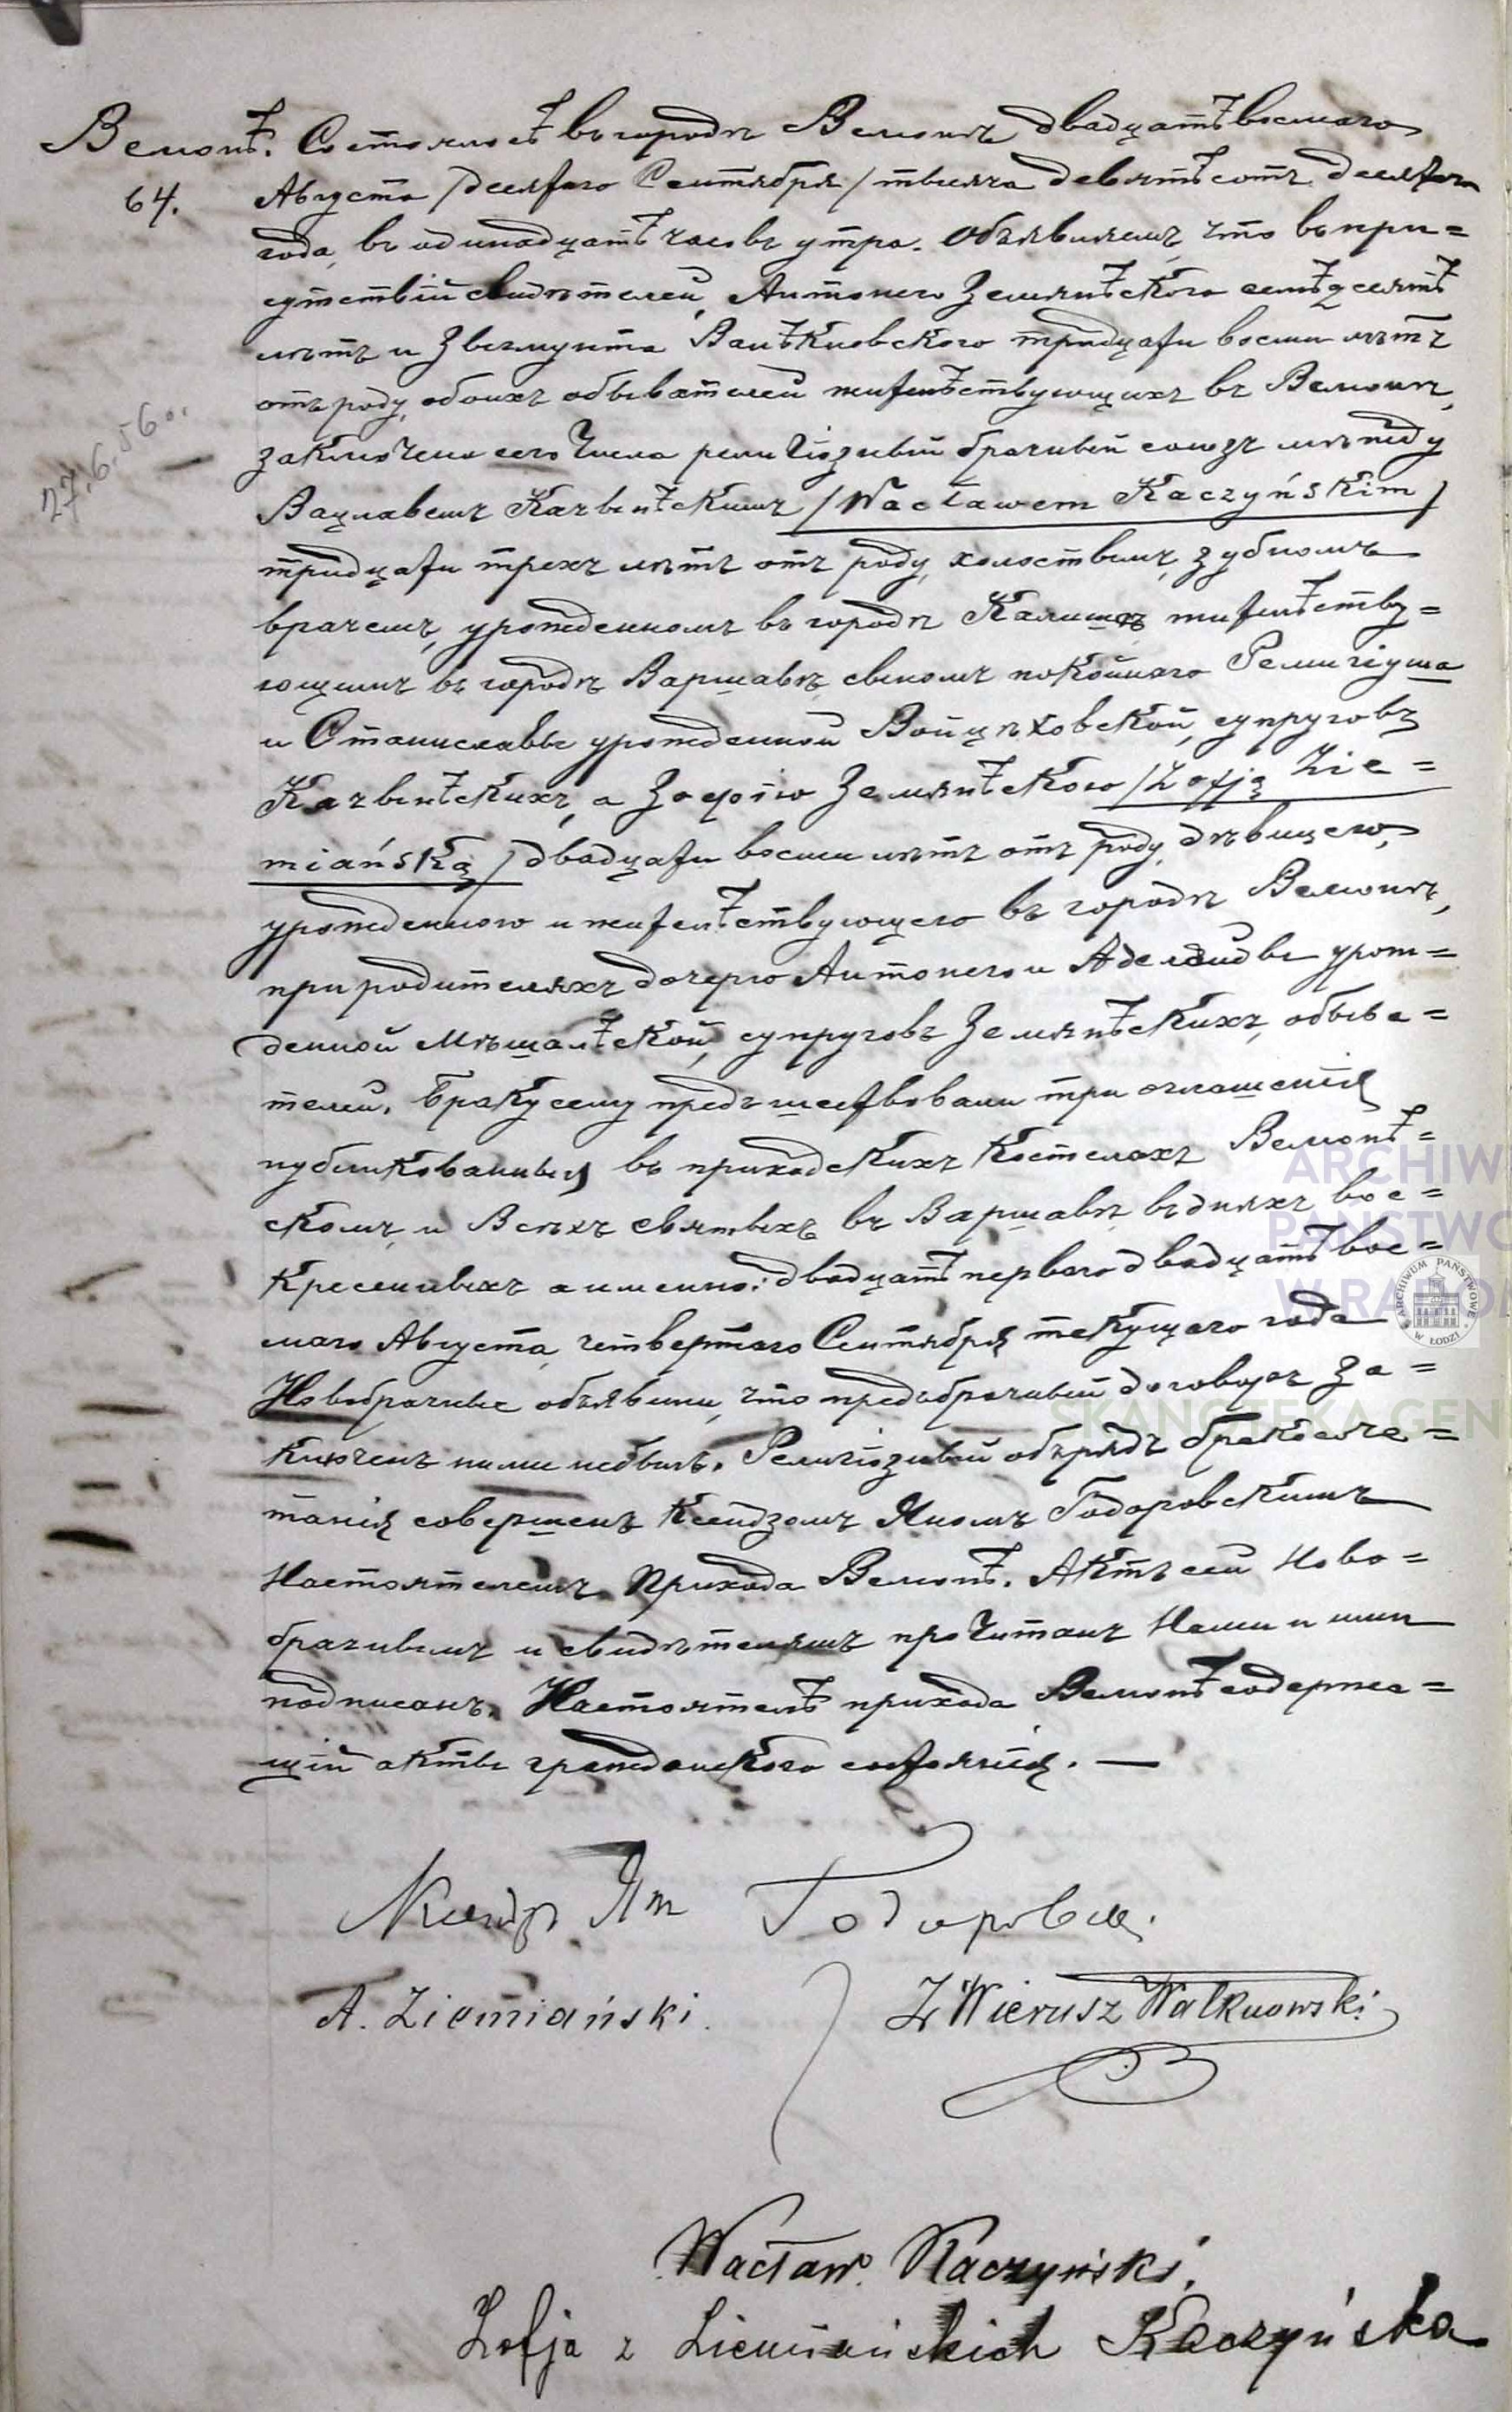 Велюнь. Состоялось въ городѣ Велюнѣ двадцать восьмаго
64. Августа /десятаго Сентября/ тысяча девятьсотъ десятаго
года, въ одинадцать часовъ утра. Объявляемъ, что въ при=
сутствіи свидѣтелей, Антонего Земяньского семьдесятъ
лѣтъ и Зыгмунта Валькновского тридцати восьми лѣтъ
отъ роду, обоихъ обывателей жительствующихъ въ Велюнѣ,
заключено сего числа религіозный брачный союзъ между
27.6.56
Вацлавемъ Качыньскимъ /Wacławem Kaczyńskim/
тридцати трехъ лѣтъ отъ роду, холостымъ, зубнымъ
врачемъ, урожденномъ въ городѣ Калишѣ жительству=
ющимъ въ городѣ Варшавѣ, сыномъ покойнаго Ремигіуша
и Станиславы урожденной Войцѣховской, супруговъ
Качыньскихъ, а Зофіею Земяньского /Zofją Zie=
miańską/ двадцати восьми лѣтъ отъ роду, дѣвицею,
урожденною и жительствующего въ городѣ Велюнѣ,
при родителяхъ дочерью Антонего и Аделаиды урож=
денной Мѣшальской, супруговъ Земяньскихъ, обыва=
телей. Браку сему предшествовали три оглашенія
публикованныя въ приходскихъ костелахъ Велюнь=
скомъ и Всѣхъ святыхъ въ Варшавѣ въ дняхъ вос=
кресенныхъ а именно: двадцать первого двадцать вос=
мого Августа, четвертаго Сентября текущаго года
Новобрачные объявили, что предъбрачный договоръ за=
ключенъ ними небылъ. Религіозный обърядъ бракосоче=
танія совершенъ Ксендзомъ Яномъ Годоровскимъ
Настоятелемъ Прихода Велюнь. Актъ сей ново=
брачнымъ и свидѣтелямъ прочитанъ Нами и ими
подписанъ. Настоятель прихода Велюнь содержа=
щій акты гражданского состоянія. —
Ксендзъ Ян Годоровск.
A. Ziemiański. Z Wierusz Walknowski
Wacław Kaczyński.
Zofja z Ziemiańskich Kaczyńska
ARCHIWUM PAŃSTWOWE W ŁODZI
ARCHIW
PAŃSTWO
W RADO
SKANOTEKA GEN